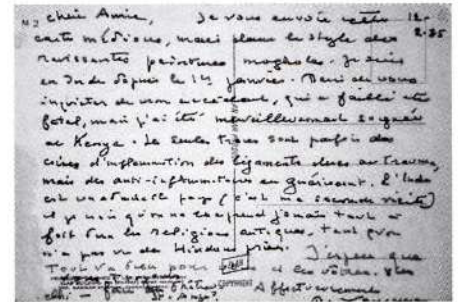 cher Ami, Je vous envoie cette 12.
carte médiocre, mais dans le style des 2.85
ravissantes peintures mogholes. Je suis
en Inde depuis le 14 janvier. Merci de vous
inquiéter de mon accident, qui a failli être
fatal, mais j'ai été merveilleusement soignée
au Kenya. Les seules traces sont parfois des
crises d'inflammation des ligaments dues au trauma,
mais des anti-inflammatoires en guérissent. L'Inde
est un pays (c'est ma seconde visite)
et je crois qu'on ne comprend jamais tout à
fait bien les religions antiques, tant qu'on
n'a pas vu de Hindous prier. J'espère que
Tout va bien pour et les vôtres.
COPYRIGHT Affectueusement